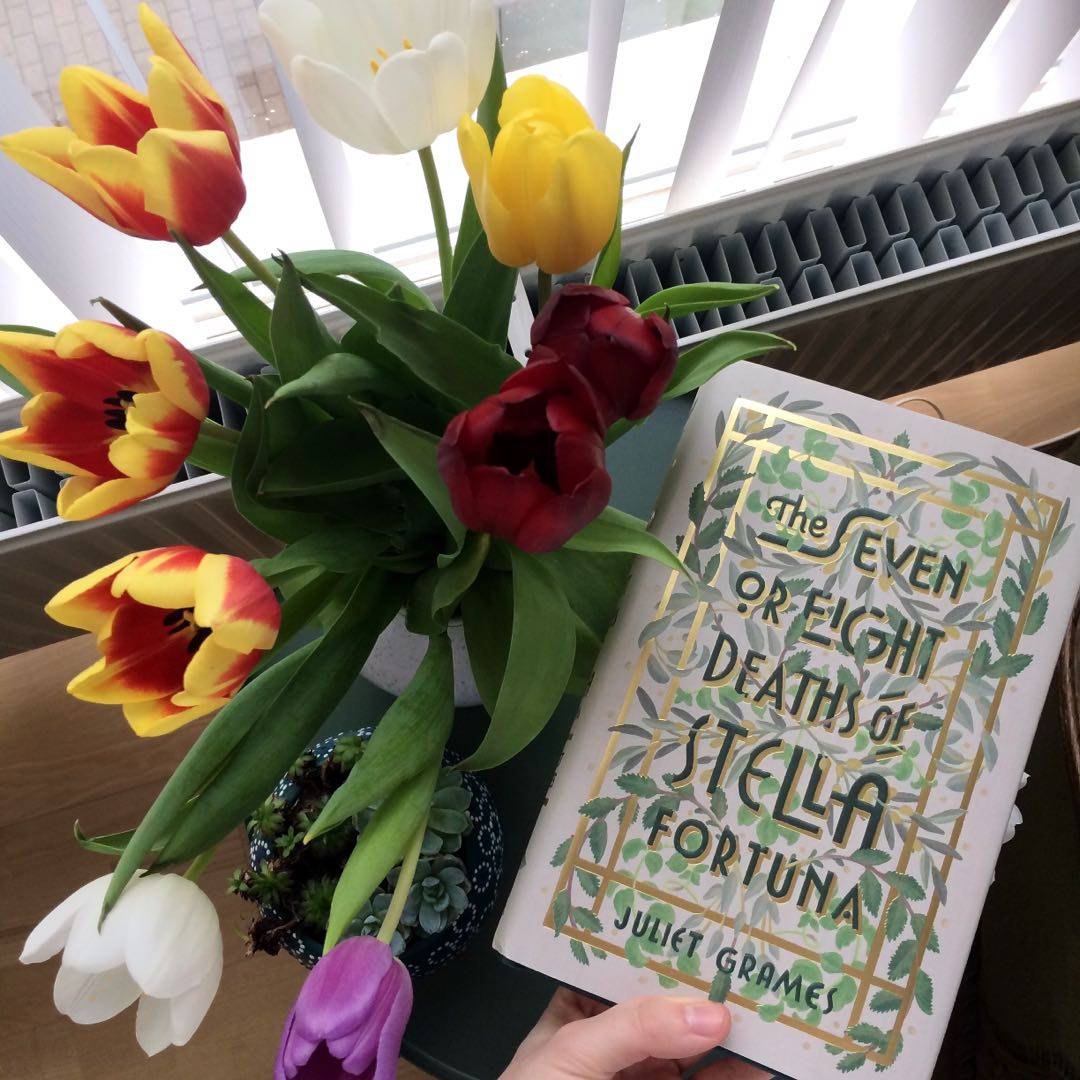 The SEVEN
OR EIGHT
DEATHS OF
STELLA
FORTUNA
JULIET GRAMES